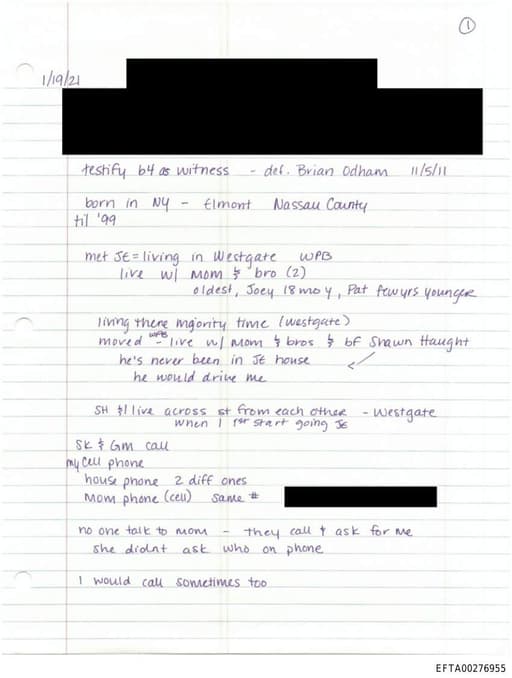 1
1/19/21
testify b4 as witness - def. Brian Odham 11/5/11
born in NY - Elmont Nassau County
til '99
met JE = living in Westgate WPB
live w/ mom & bro (2)
oldest, Joey 18 mo y, Pat few yrs younger
living there majority time (westgate)
WPB
moved - live w/ mom & bros & bf Shawn Haught
he's never been in JE house
he would drive me
SH & I live across st from each other - Westgate
when I 1st start going JE
SK & GM call
my cell phone
house phone 2 diff ones
Mom phone (cell) same #
no one talk to mom - they call & ask for me
she didnt ask who on phone
I would call sometimes too
EFTA00276955